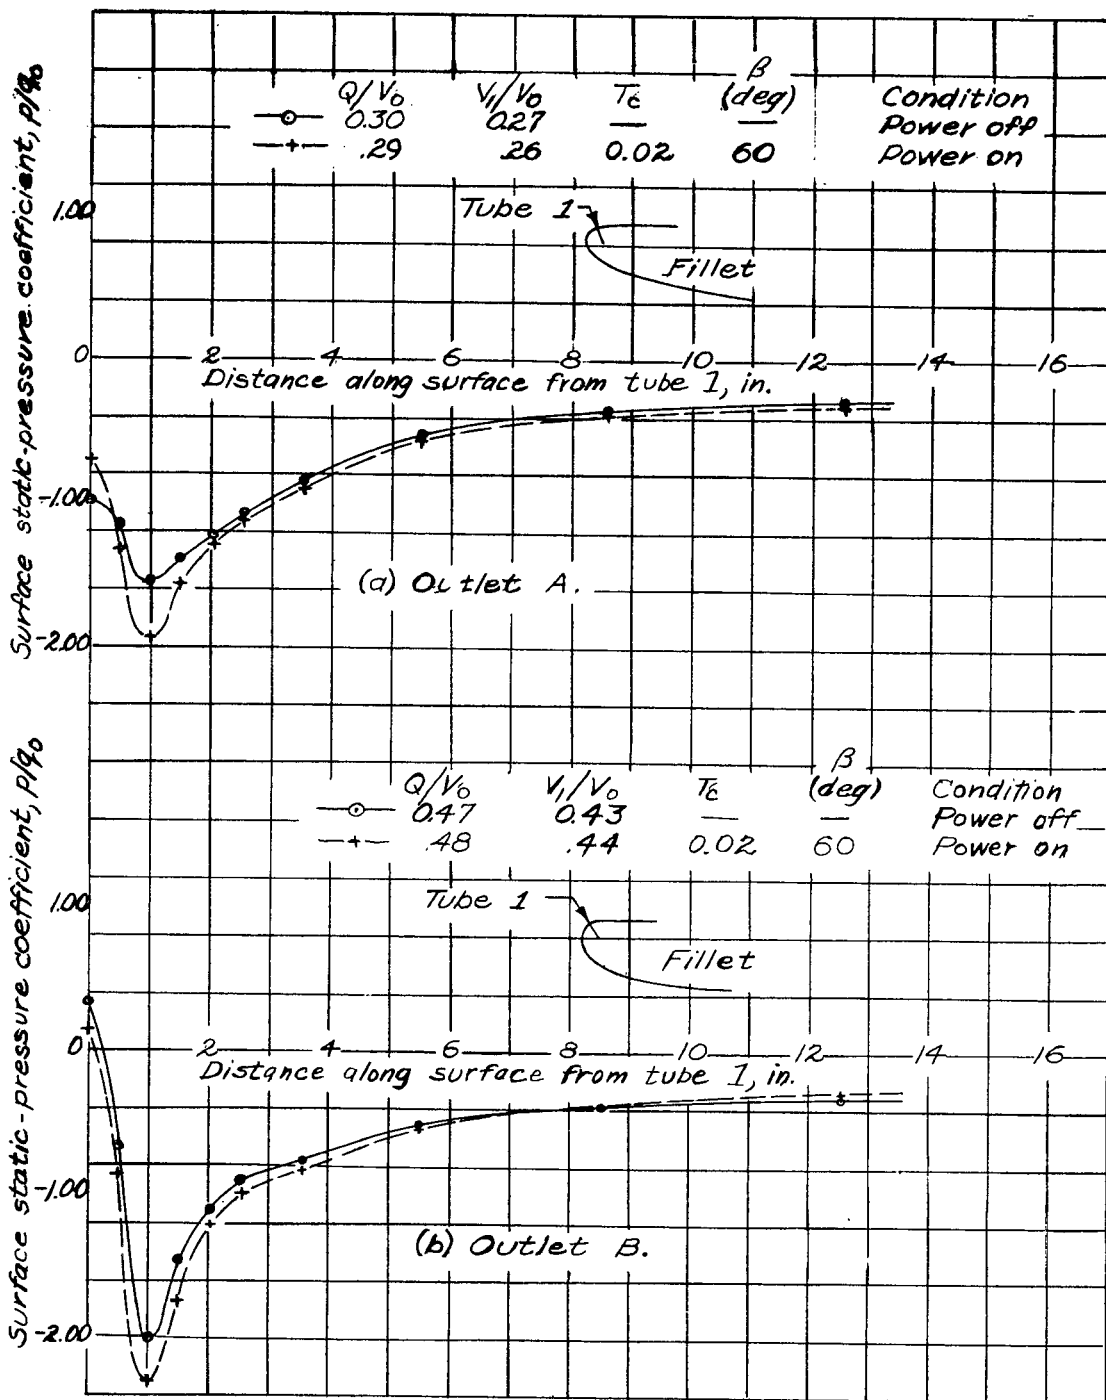 Surface static-pressure coefficient, p/q₀
Q/V₀ V₁/V₀ Tc β (deg) Condition
0.30 0.27 — — Power off
.29 .26 0.02 60 Power on
1.00
Tube 1
Fillet
0 2 4 6 8 10 12 14 16
Distance along surface from tube 1, in.
-1.00
(a) Outlet A.
-2.00
Surface static-pressure coefficient, p/q₀
Q/V₀ V₁/V₀ Tc β (deg) Condition
0.47 0.43 — — Power off
.48 .44 0.02 60 Power on
1.00
Tube 1
Fillet
0 2 4 6 8 10 12 14 16
Distance along surface from tube 1, in.
-1.00
(b) Outlet B.
-2.00